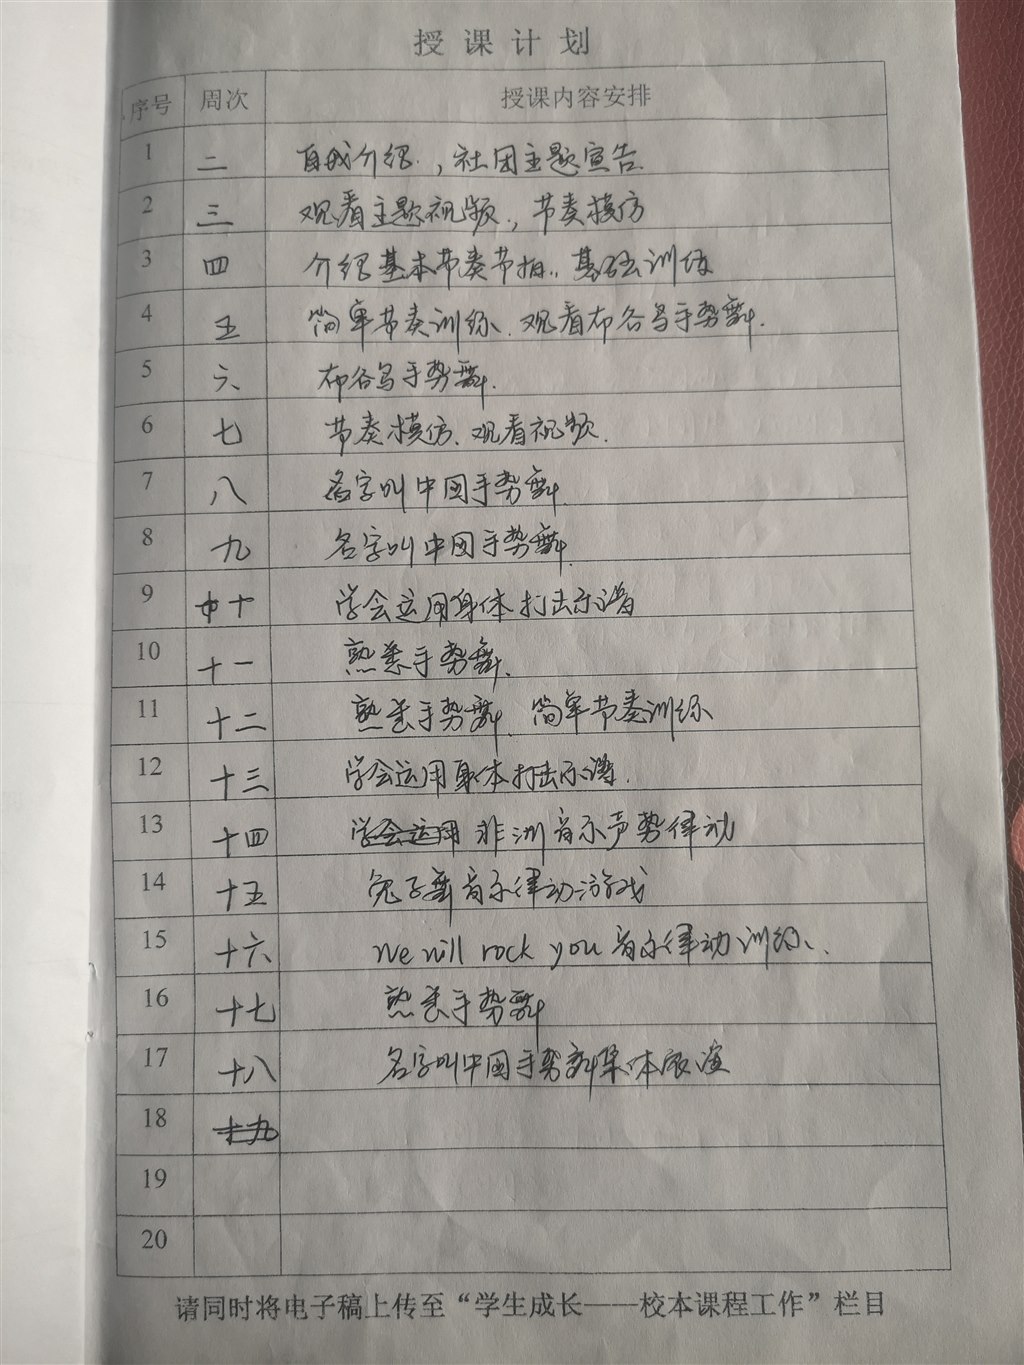 授课计划
序号 周次 授课内容安排
1 二 自我介绍，社团主题宣告
2 三 观看主题视频，节奏模仿
3 四 介绍基本节奏节拍，基础训练
4 五 简单节奏训练、观看布谷鸟手势舞.
5 六 布谷鸟手势舞.
6 七 节奏模仿、观看视频.
7 八 名字叫中国手势舞.
8 九 名字叫中国手势舞.
9 十 学会运用身体打击乐谱
10 十一 熟悉手势舞.
11 十二 熟悉手势舞、简单节奏训练
12 十三 学会运用身体打击乐谱.
13 十四 学会运用 非洲音乐声势律动
14 十五 兔子舞音乐律动游戏
15 十六 we will rock you 音乐律动训练.
16 十七 熟悉手势舞
17 十八 名字叫中国手势舞集体展演
18 十九
19
20
请同时将电子稿上传至“学生成长——校本课程工作”栏目